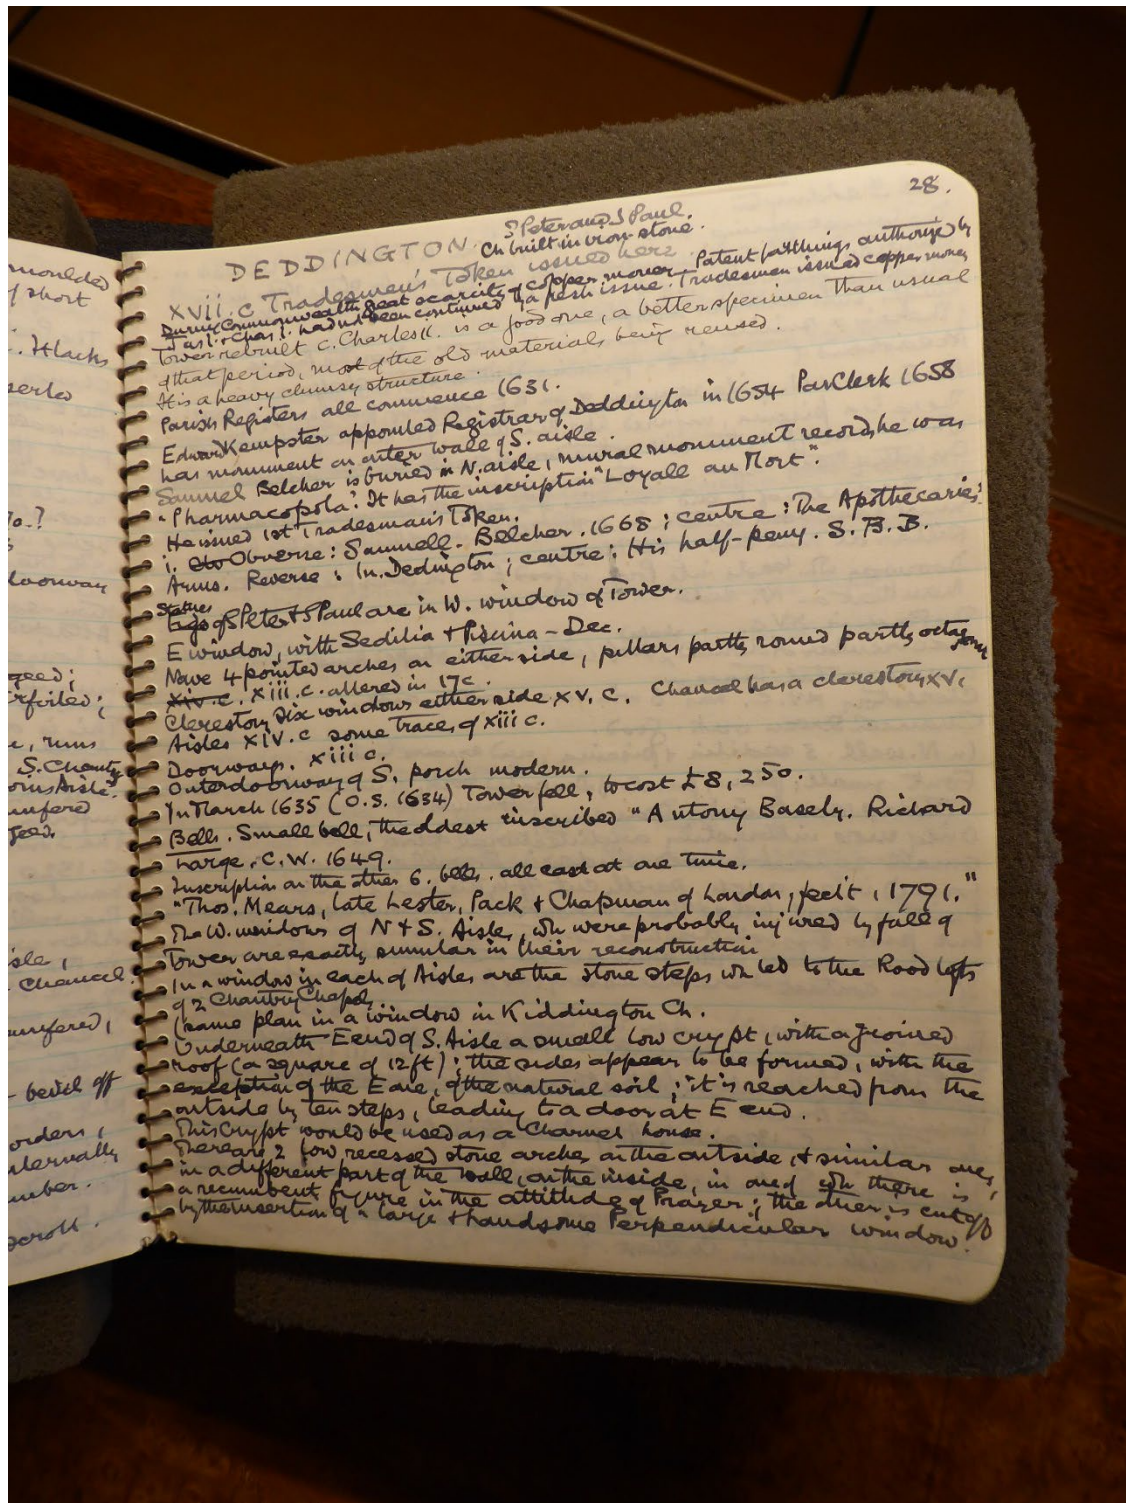 moulded
of short
. It lacks
serted
to.?
s
doorway
geed;
rfoiled;
e, runs
S. Chantry
orns Aisle.
amfered
geed.
isle,
Chancel.
amfered,
- bevil off
orders,
nternally
umber.
scroll.
28.
DEDDINGTON S Peter and S Paul.
Ch built in iron-stone.
XVII.c Tradesmen's Token issued here
During Commonwealth great scarcity of copper money. Patent farthings authorized by
Jas I. + Chas I. had not been continued by a fresh issue. Tradesmen issued copper money
Tower rebuilt c. Charles II. is a good one, a better specimen than usual
of that period, most of the old materials being reused.
It is a heavy clumsy structure.
Parish Registers all commence 1631.
Edward Kempster appointed Registrar of Deddington in 1654 Par Clerk 1658
has monument on outer wall of S. aisle.
Samuel Belcher is buried in N. aisle, mural monument records he was
"Pharmacopola". It has the inscription "Loyall au Mort".
He issued 1st Tradesman's Token.
1. Obverse: Samuell. Belcher. 1668; centre: The Apothecaries'
Arms. Reverse: In. Dedington; centre: His half-peny. S. B. B.
Statues
Figs of S Peter + S Paul are in W. window of Tower.
E window, with Sedilia + Piscina - Dec.
Nave 4 pointed arches on either side, pillars partly round partly octagonal
XIV.c. XIII.c. altered in 17c.
Clerestory six windows either side XV.c. Chancel has a clerestory XV.
Aisles XIV.c some traces of XIII c.
Doorways. XIII c.
Outer doorway of S. porch modern.
In March 1635 (O.S. 1634) Tower fell, to cost £8,250.
Bells. Small bell, the oldest inscribed "Antony Basely. Richard
Large. C.W. 1649.
Inscription on the other 6. bells. all cast at one time.
"Thos. Mears, late Lester, Pack + Chapman of London, fecit, 1791."
The W. windows of N + S. Aisle, wh were probably injured by fall of
Tower are exactly similar in their reconstruction
In a window in each of Aisles are the stone steps wh led to the Rood lofts
of 2 Chantry Chapels
(same plan in a window in Kiddington Ch.
Underneath E end of S. Aisle a small low crypt, with a groined
roof (a square of 12ft); the sides appear to be formed, with the
exception of the E one, of the natural soil; it is reached from the
outside by ten steps, leading to a door at E end.
This Crypt would be used as a Charnel house.
There are 2 low recessed stone arches on the outside, + similar ones,
in a different part of the wall, on the inside, in one of wh there is
a recumbent figure in the attitude of Prayer; the other is cut off
by the insertion of a large + handsome Perpendicular window.